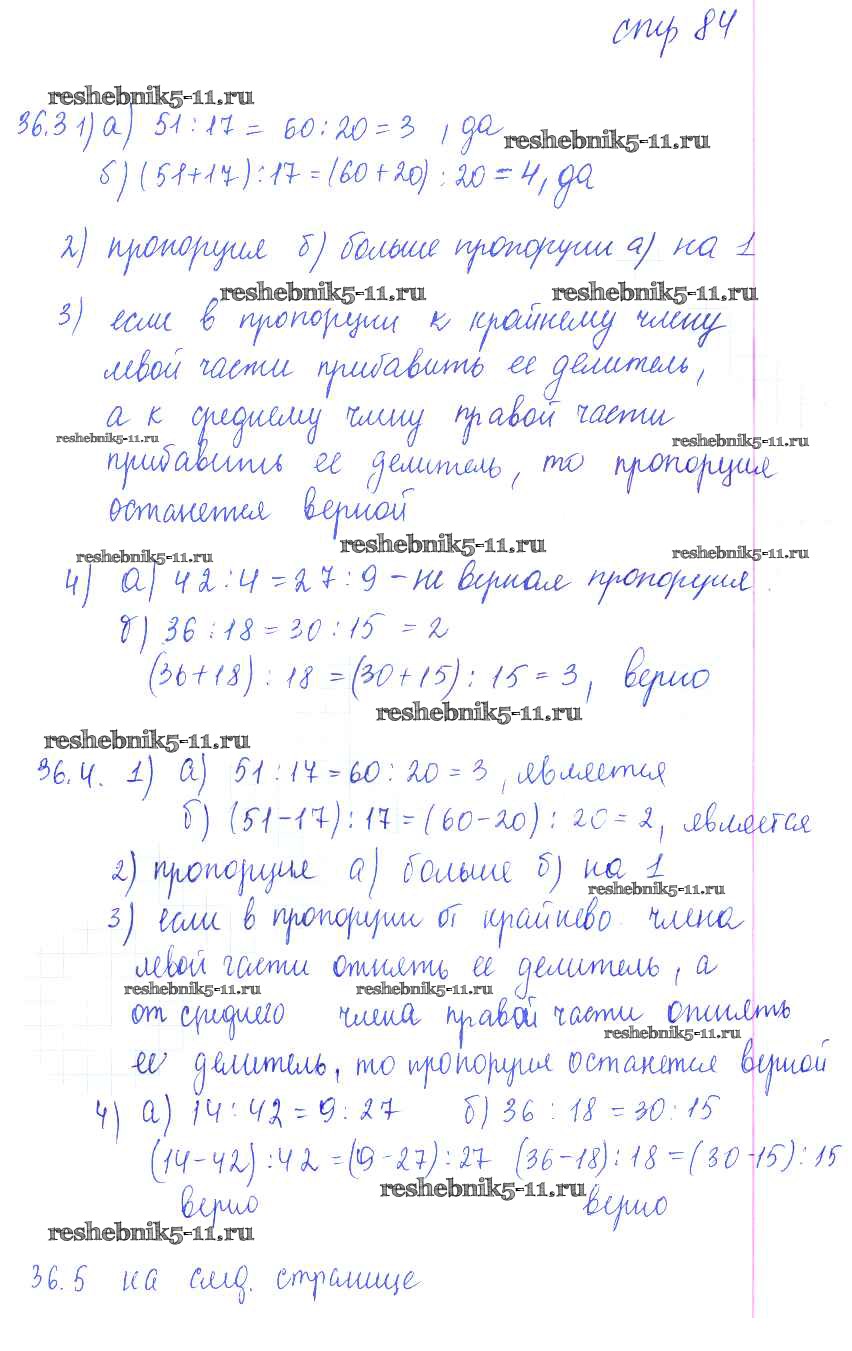 стр 84
reshebnik5-11.ru
36.3 1) а) 51:17 = 60:20 = 3 , да
reshebnik5-11.ru
б) (51+17):17 = (60+20):20 = 4, да
2) пропорция б) больше пропорции а) на 1
reshebnik5-11.ru reshebnik5-11.ru
3) если в пропорции к крайнему члену
левой части прибавить ее делитель,
а к среднему члену правой части
reshebnik5-11.ru reshebnik5-11.ru
прибавить ее делитель, то пропорция
останется верной
reshebnik5-11.ru reshebnik5-11.ru reshebnik5-11.ru
4) а) 42:4 = 27:9 – не верная пропорция.
б) 36:18 = 30:15 = 2
(36+18):18 = (30+15):15 = 3, верно
reshebnik5-11.ru
reshebnik5-11.ru
36.4. 1) а) 51:17 = 60:20 = 3, является
б) (51-17):17 = (60-20):20 = 2, является
2) пропорция а) больше б) на 1
reshebnik5-11.ru
3) если в пропорции от крайнево члена
левой части отнять ее делитель, а
reshebnik5-11.ru reshebnik5-11.ru
от среднего члена правой части отнять
reshebnik5-11.ru
ее делитель, то пропорция останется верной
4) а) 14:42 = 9:27 б) 36:18 = 30:15
(14-42):42 = (9-27):27 (36-18):18 = (30-15):15
reshebnik5-11.ru
верно верно
reshebnik5-11.ru
36.5 на след. странице